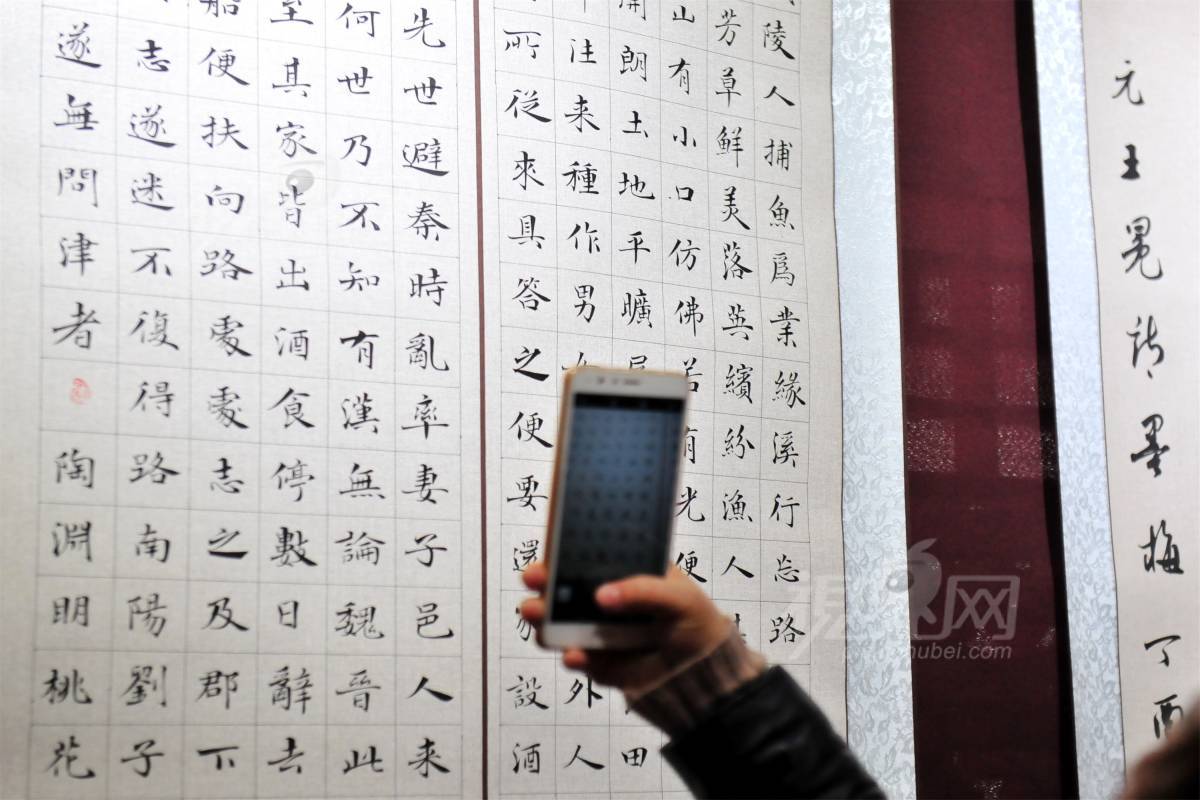 元王冕詩墨梅丁酉
陵人捕魚爲業緣溪行忘路
芳草鮮美落英繽紛漁人
山有小口仿佛若有光便
開朗土地平曠 田
往来種作男 外人
所從來具答之便要還家設酒
先世避秦時亂率妻子邑人来
何世乃不知有漢無論魏晉此
至其家皆出酒食停數日辭去
船便扶向路處處志之及郡下
志遂迷不復得路南陽劉子
遂無問津者 陶淵明桃花